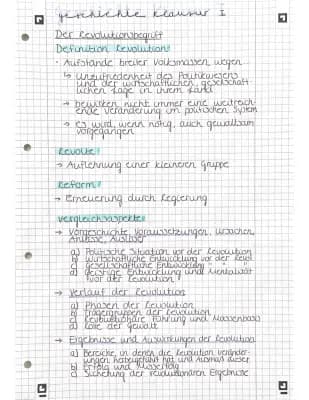 geschichte Klausur I
Der Revolutionsbegriff
Definition Revolution:
• Aufstände breiter Volksmassen wegen
↳ Unzufriedenheit des Politikwesens
und der wirtschaftlichen, gesellschaft-
lichen Lage in ihrem Land
→ bewirken nicht immer eine weitreich-
ende Veränderung im politischen System
→ es wird, wenn nötig, auch gewaltsam
vorgegangen
Revolte:
→ Auflehnung einer kleineren Gruppe
Reform:
→ Erneuerung durch Regierung
Vergleichsaspekte:
→ Vorgeschichte, Voraussetzungen, Ursachen,
Anlässe, Auslöser
a) Politische Situation vor der Revolution
b) Wirtschaftliche Entwicklung vor der Revol.
c) Gesellschaftliche Entwicklung " " "
d) geistige Entwicklung und Mentalität
vor der Revolution
→ Verlauf der Revolution
a) Phasen der Revolution
b) Trägergruppen der Revolution
c) Revolutionäre Führung und Massenbasis
d) Rolle der Gewalt
→ Ergebnisse und Auswirkungen der Revolution
a) Bereiche, in denen die Revolution veränder-
ungen herbeigeführt hat und Ausmaß dieser
b) Erfolg und Misserfolg
c) Sicherung der revolutionären Ergebnisse